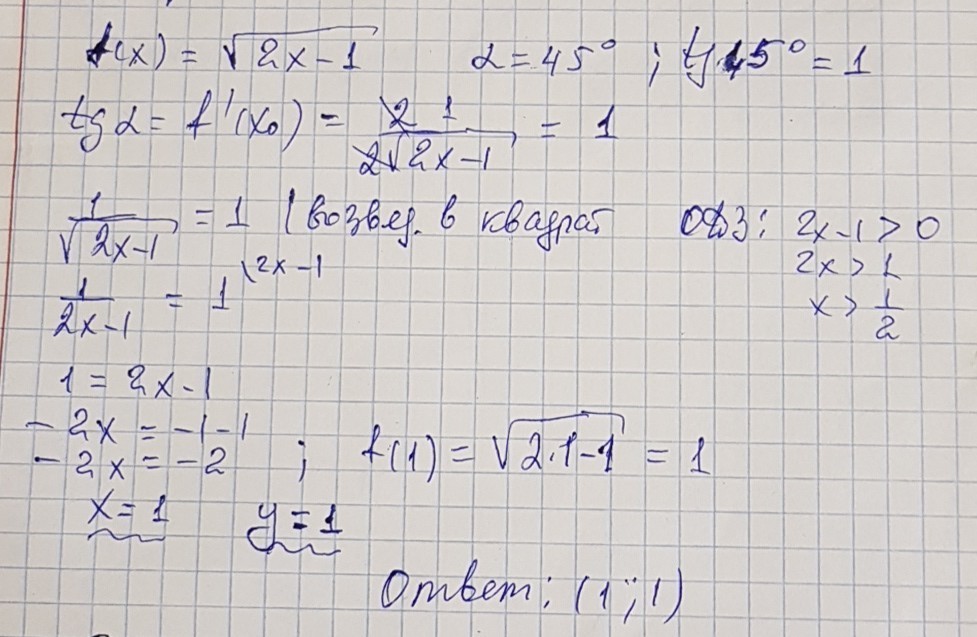 f(x) = √2x-1   α = 45° ; tg 45° = 1
tg α = f'(x₀) = 2 1 / 2√2x-1 = 1
1/√2x-1 = 1 | возвед. в квадрат   ОДЗ: 2x-1 > 0
2x > 1
1/2x-1 = 1 \2x-1   x > 1/2
1 = 2x-1
-2x = -1-1
-2x = -2 ; f(1) = √2·1-1 = 1
x = 1   y = 1
Ответ: (1;1)